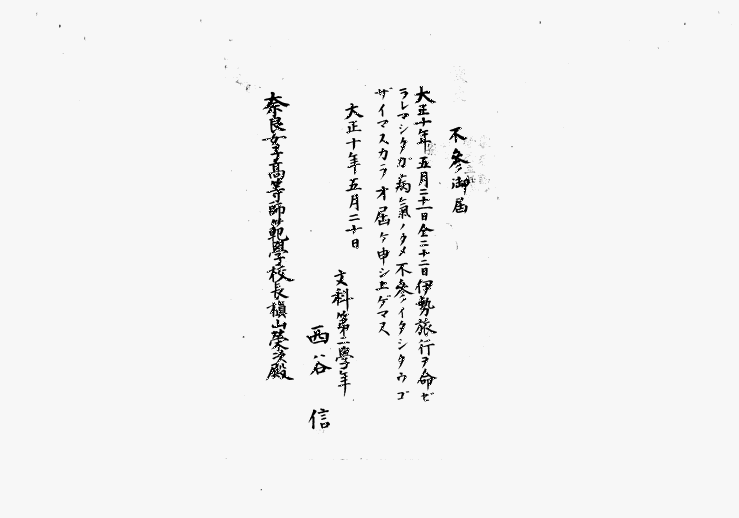 不參御届
大正十年五月二十一日仝二十二日伊勢旅行ヲ命ゼ
ラレマシタガ病氣ノタメ不參イタシタウゴ
ザイマスカラオ届ケ申シ上ゲマス
大正十年五月二十日
文科第二學年
西谷 信
奈良女子高等師範學校長槇山榮次殿